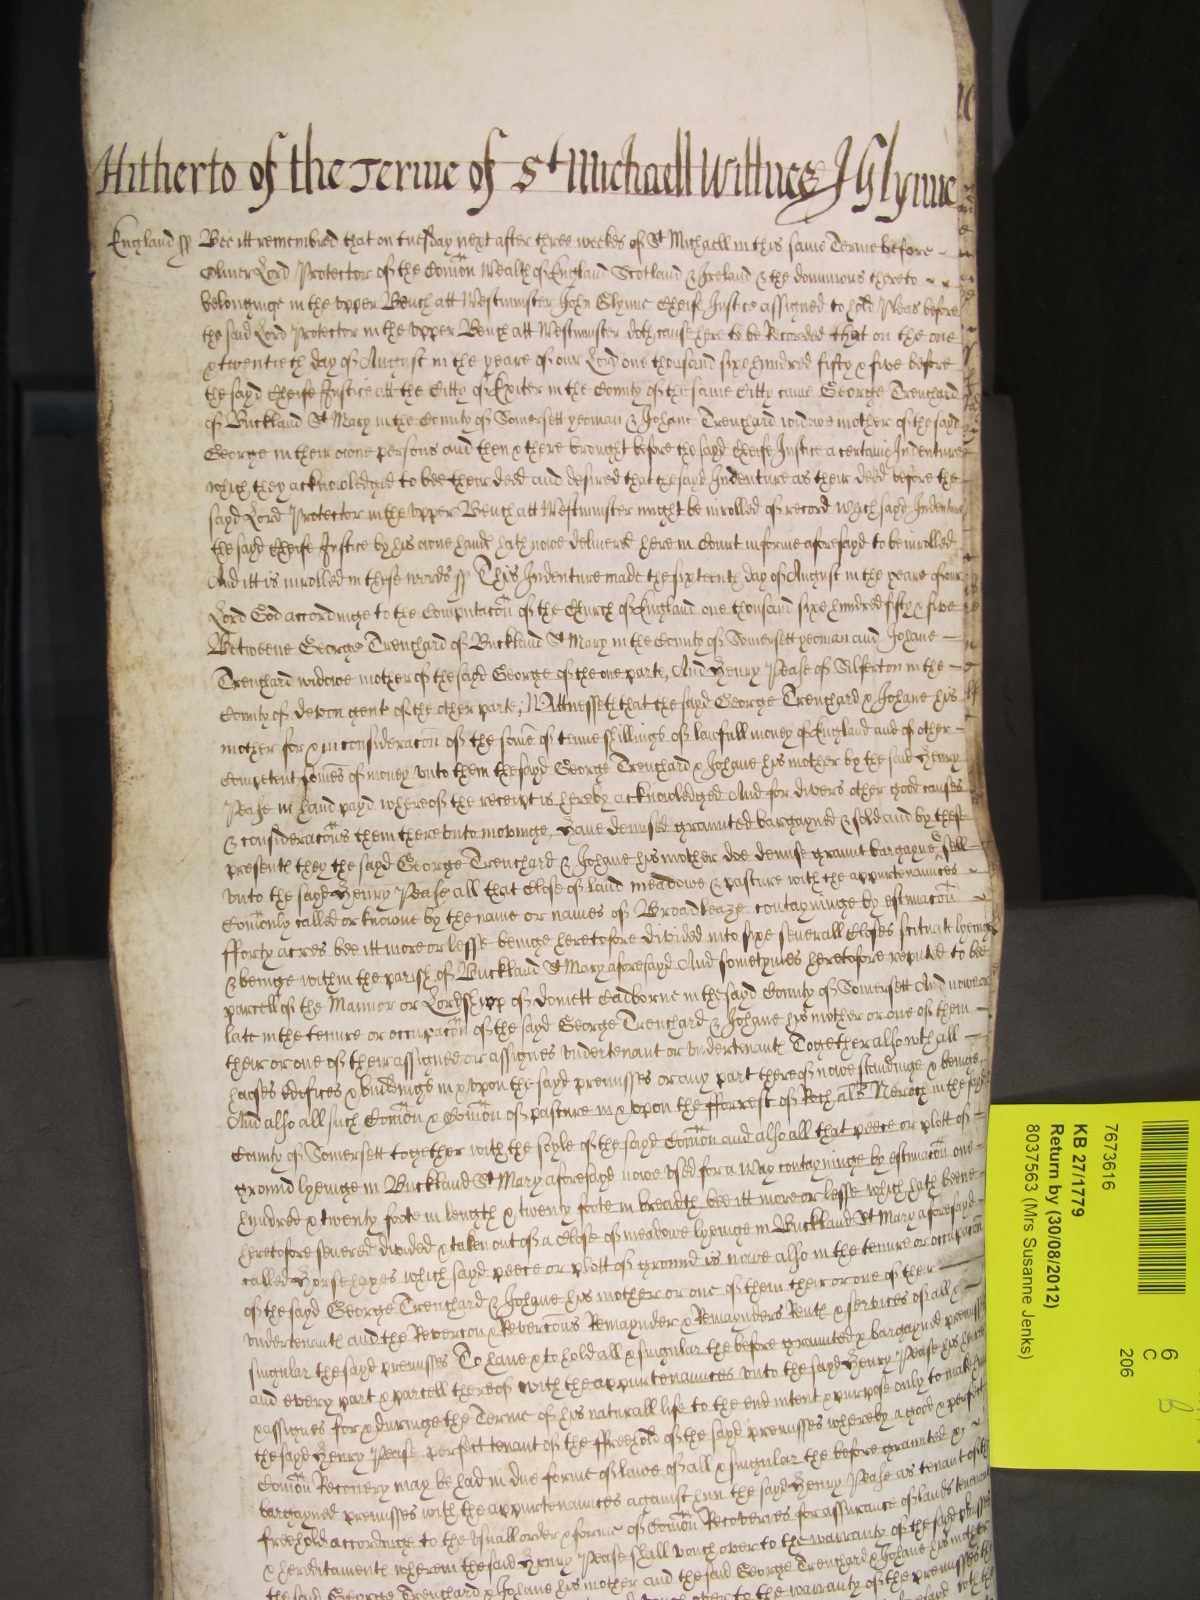 Hitherto of the Terme of St Michaell Wittnes J Glynne
England ss Bee itt remembred that on tuesday next after three weekes of St Michaell in this same Terme before
Oliver Lord Protector of the Comon Wealth of England Scotland & Ireland & the dominions thereto
belonginge in the upper Bench att Westminster John Glynne Cheife Justice assigned to hold Pleas before
the said Lord Protector in the upper Bench att Westminster doth cause here to be Recorded that on the one
& twentieth day of August in the yeare of our Lord one thousand sixe hundred fifty & five before
the sayd Cheife Justice att the Citty of Exiter in the County of the same Citty came George Trenchard
of Buckland St Mary in the County of Somersett yeoman & Johane Trenchard widdowe mother of the sayd
George in their owne persons and then & there brought before the sayd Cheife Justice a certaine Indenture
which they acknowledged to bee their deed and desired that the sayd Indenture as their deed before the
sayd Lord Protector in the upper Bench att Westminster might be inrolled of record which sayd Indenture
the sayd Cheife Justice by his owne hands hath nowe delivered here in Court in forme aforesayd to be inrolled
And itt is inrolled in these words ss This Indenture made the sixteenth day of August in the yeare of our
Lord God accordinge to the Computacon of the Church of England one thousand sixe hundred fifty & five
Betweene George Trenchard of Buckland St Mary in the County of Somersett yeoman and Johane
Trenchard widdowe mother of the sayd George of the one parte, And Henry Pease of Silferton in the
County of devon gent of the other parte; Wittnesseth that the sayd George Trenchard & Johane his
mother for & in consideracon of the some of tenne shillings of lawfull money of England and of other
Competent somes of money unto them the sayd George Trenchard & Johane his mother by the said Henry
Pease in hand payd whereof the receipt is hereby acknowledged And for divers other good causes
& consideracons them thereunto movinge, Have demised graunted bargayned & sold and by these
presents they the sayd George Trenchard & Johane his mother doe demise graunt bargayne & sell
unto the sayd Henry Pease all that Close of land meadowe & pasture with the appurtenances
Comonly called or knowne by the name or names of Broadleaze contayninge by estimacon
fforty acres bee itt more or lesse beinge heretofore divided into sixe severall Closes scituate lyeinge
& beinge within the parish of Buckland St Mary aforesayd And sometymes heretofore reputed to bee
parcell of the Mannor or Lordshipp of Domett Cadborne in the sayd County of Somersett And nowe or
late in the tenure or occupacon of the sayd George Trenchard & Johane his mother or one of them
their or one of their assignee or assignes undertenant or undertenants Together also with all
houses edifices & buildings in & upon the sayd premisses or any part thereof nowe standinge & beinge
And also all such Comon & Comon of pasture in & upon the fforrest of Roch als Neroch in the sayd
County of Somersett together with the soyle of the sayd Comon and also all that peece or plott of
ground lyeinge in Buckland St Mary aforesayd nowe used for a Way contayninge by estimacon one
hundred & twenty foote in length & twenty foote in breadth bee itt more or lesse which hath beene
heretofore severed divided & taken out of a Close of meadowe lyeinge in Buckland St Mary aforesayd
called Horsehayes which sayd peece or plott of ground is nowe also in the tenure or occupacon
of the sayd George Trenchard & Johane his mother or one of them their or one of their
undertenants and the Revercon & Revercons Remaynder & Remaynders Rents & services of all &
singular the sayd premisses To have & to hold all & singular the before graunted & bargayned premisses
and every part & parcell thereof with the appurtenances unto the sayd Henry Pease his heires
& assignes for & duringe the Terme of his naturall life to the end intent & purpose only to make him
the sayd Henry Pease perfect tenant of the ffreehold of the sayd premisses whereby a good & perfect
Comon Recovery may be had in due forme of lawe of all & singular the before graunted &
bargayned premisses with the appurtenances against him the sayd Henry Pease as tenant of the
freehold accordinge to the usuall order & forme of Comon Recoveries for assurance of lands tenements
& hereditaments wherein the said Henry Pease shall vouch over to the warranty of the sayd premisses
the said George Trenchard & Johane his mother and the said George Trenchard & Johane his mother
over to the warranty of the premisses
7673616
KB 27/1779
Return by (30/08/2012)
8037563 (Mrs Susanne Jenks)
6
C
206